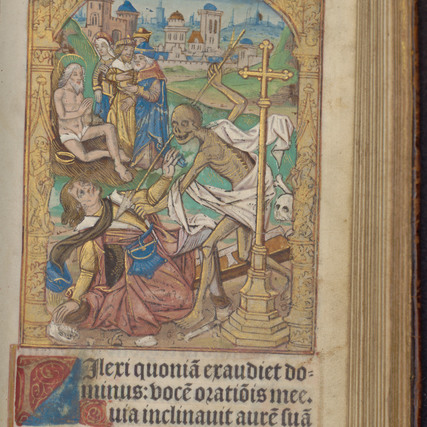 Dilexi quoniã exaudiet do=
minus: vocẽ oratiõis mee.
Quia inclinauit aurẽ suã